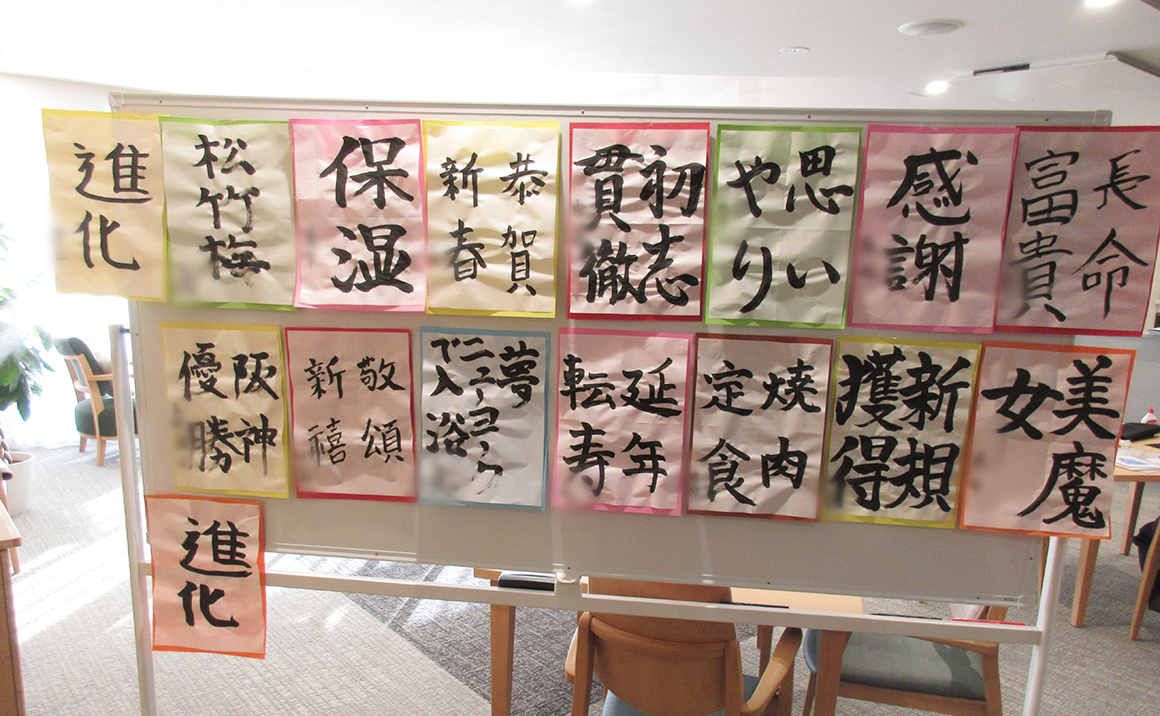 進化
松竹梅
保湿
恭賀
新春
初志
貫徹
思い
やり
感謝
長命
富貴
阪神
優勝
敬頌
新禧
夢
ニューヨーク
で入浴
延年
転寿
焼肉
定食
新規
獲得
美魔
女
進化